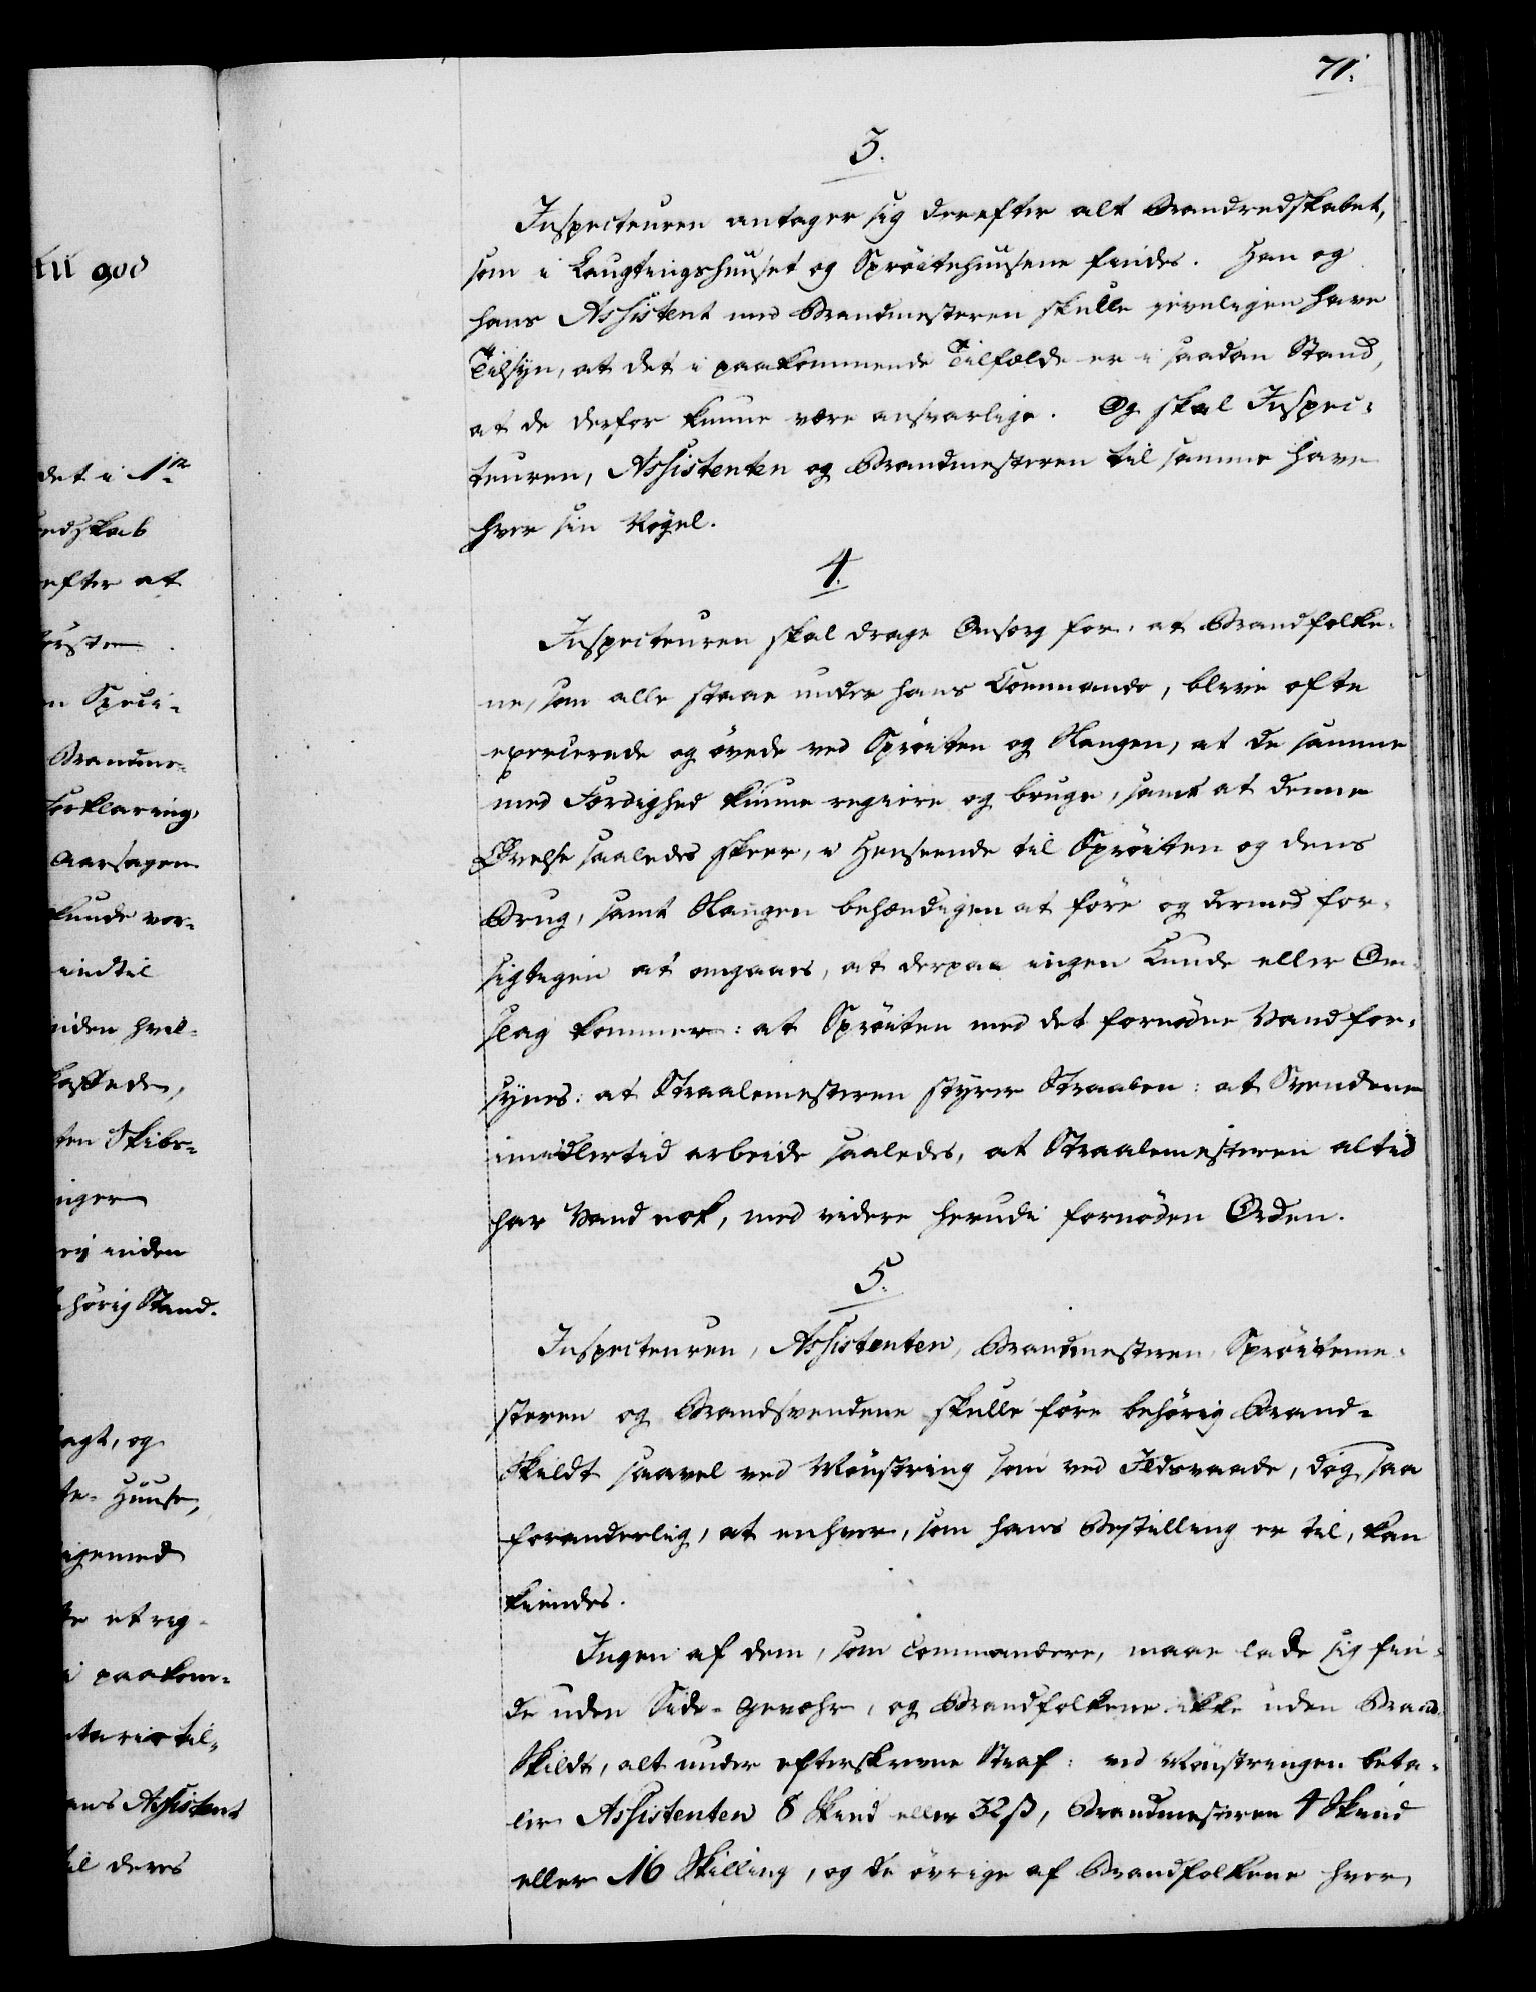 71.
3.
Inspecteuren antager sig derefter alt Brandredskabet,
som i Laugtingshuuset og Sprøitehuusene findes. Han og
hans Assistent med Brandmesteren skulle jevnligen have
Tilsyn, at det i paakommende Tilfælde er i saadan Stand,
at de derfor kunne være ansvarlige. Og skal Inspec-
teuren, Assistenten og Brandmesteren til samme have
hver sin Nøgel.
4.
Inspecteuren skal drage Omsorg for, at Brandfolke-
ne, som alle staae under hans Commando, blive ofte
exercerede og øvede ved Sprøiten og Slangen, at de samme
med Færdighed kunne regiere og bruge, samt at denne
Øvelse saaledes skeer, i Henseende til Sprøiten og dens
Brug, samt Slangen behændigen at føre og dermed for-
sigtigen at omgaaes, at derpaa ingen Lunde eller Om-
slag kommer: at Sprøiten med det fornødne Vand for-
synes: at Straalemesteren styrer Straalen: at Svendene
imidlertid arbeide saaledes, at Straalemesteren altid
har Vand nok, med videre herudi fornøden Orden.
5.
Inspecteuren, Assistenten, Brandmesteren, Sprøiteme-
steren og Brandsvendene skulle føre behørig Brand-
Skildt saavel ved Mønstring som ved Ildsvaade, dog saa
foranderlig, at enhver, som hans Bestilling er til, kan
kiendes.
Ingen af dem, som commandere, maae lade sig fin-
de uden Side-Gevæhr, og Brandfolkene ikke uden Brand-
Skildt, alt under efterskrevne Straf: ved Mønstringen beta-
ler Assistenten 8 Skind eller 32 ß, Brandmesteren 4 Skind
eller 16 Skilling, og de øvrige af Brandfolkene hver
det i 1n
edskab
efter at
ørste
n Speci-
Brandme-
forklaring,
Aarsagen
kunde vor-
indtil
iden hvil-
kastede,
ten Skibs-
inger
ey inden
behørig Stand.
agt, og
te-Huuse,
igemed
te et rig-
i paakom-
ntario til-
ans Assistent
til deres